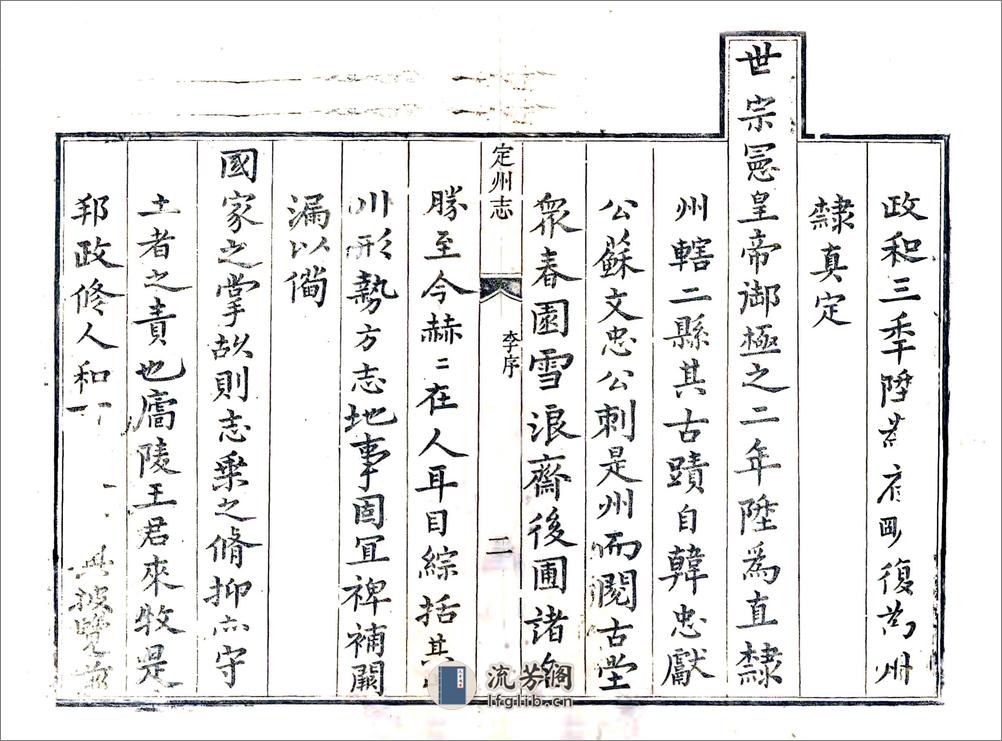 政和三年陞為府明復為州
隸真定
世宗憲皇帝御極之二年陞為直隸
州轄二縣其古蹟自韓忠獻
公蘇文忠公刺是州而閱古堂
衆春園雪浪齋後圃諸
定州志
李序
二
勝至今赫二在人耳目綜括其
川形勢方志地事固宜裨補闕
漏以備
國家之掌故則志乘之脩抑亦守
土者之責也廬陵王君來牧是
邦政修人和
披覽
流芳阁
lfglib.cn